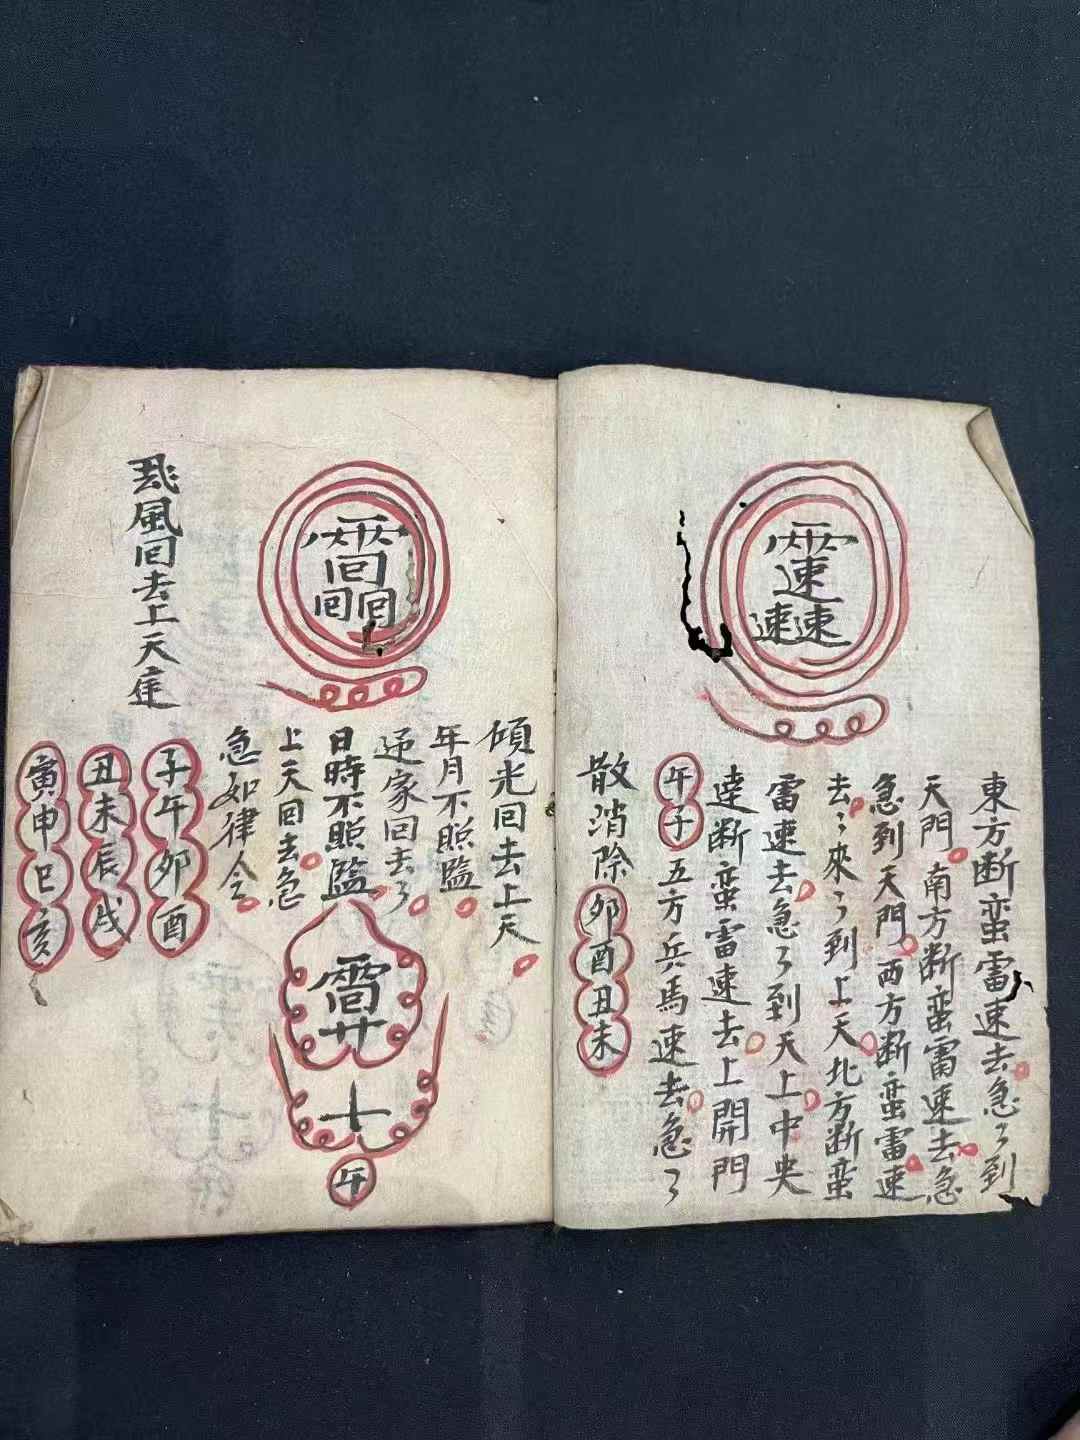 速速
東方断蛮雷速去急々到
天門南方断蛮雷速去急
急到天門西方断蛮雷速
去々來々到上天北方断蛮
雷速去急々到天上中央
達断蛮雷速去上開門
午子五方兵馬速去急々
散消除卯酉丑未
回回
頃光回去上天
年月不照監
家回去了
日時不照監
上天回去急
急如律令
十
午
風回去上天
子午卯酉
丑未辰戌
寅申巳亥